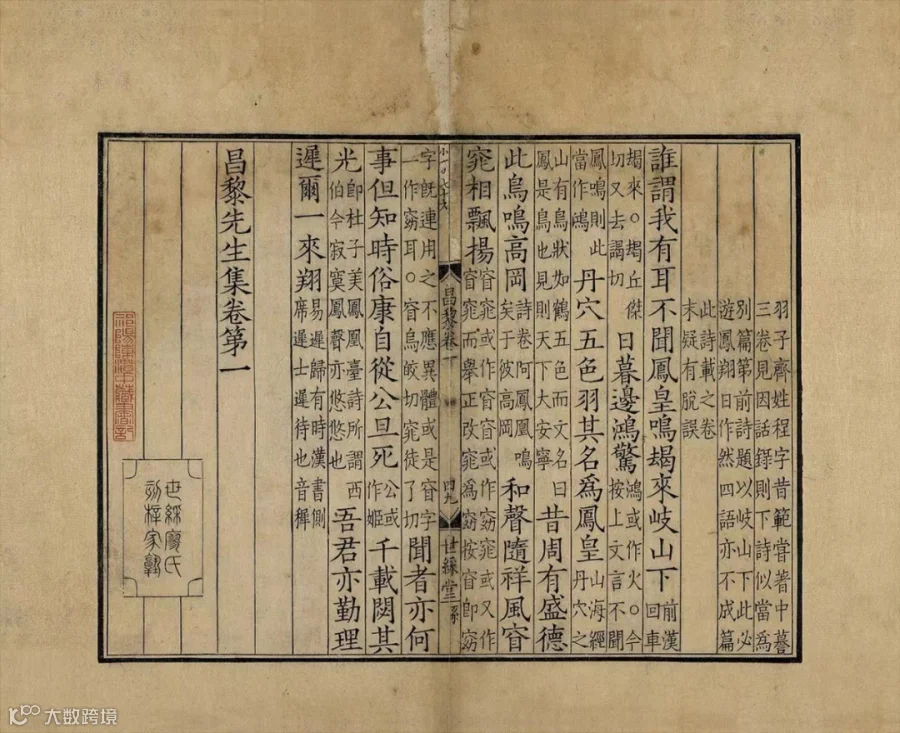 羽子齊姓程字昔範嘗著中謩
三卷見因話録則下詩似當爲
別篇第前詩題以岐山下此必
遊鳳翔日作然四語亦不成篇
此詩載之卷
末疑有脫誤
誰謂我有耳不聞鳳皇鳴朅來岐山下前漢回車
朅來○朅丘傑切又去謁切日暮邊鴻驚鴻或作火○今按上文言不聞
鳳鳴則此當作鴻丹穴五色羽其名爲鳳皇山海經丹穴之
山有鳥狀如鶴五色而文名曰鳳是鳥也見則天下大安寧昔周有盛德
此鳥鳴高岡詩卷阿鳳凰鳴矣于彼高岡和聲隨祥風窅
窕相飄揚窅窕或作窅或作窈窕或又作窅窕而舉正改窕爲窈按窅即窈
昌黎卷一 四九 世綵堂
字旣連用之不應異體或是窅字一作窈耳○窅烏皎切窕徒了切聞者亦何
事但知時俗康自從公旦死公或作姬千載閟其
光即杜子美鳳凰臺詩所謂西伯今寂寞鳳聲亦悠悠也吾君亦勤理
遲爾一來翔易遲歸有時漢書側席遲士遲待也音穉
昌黎先生集卷第一
祁陽陳澄中藏書記
世綵廖氏
刻梓家塾
大数跨境